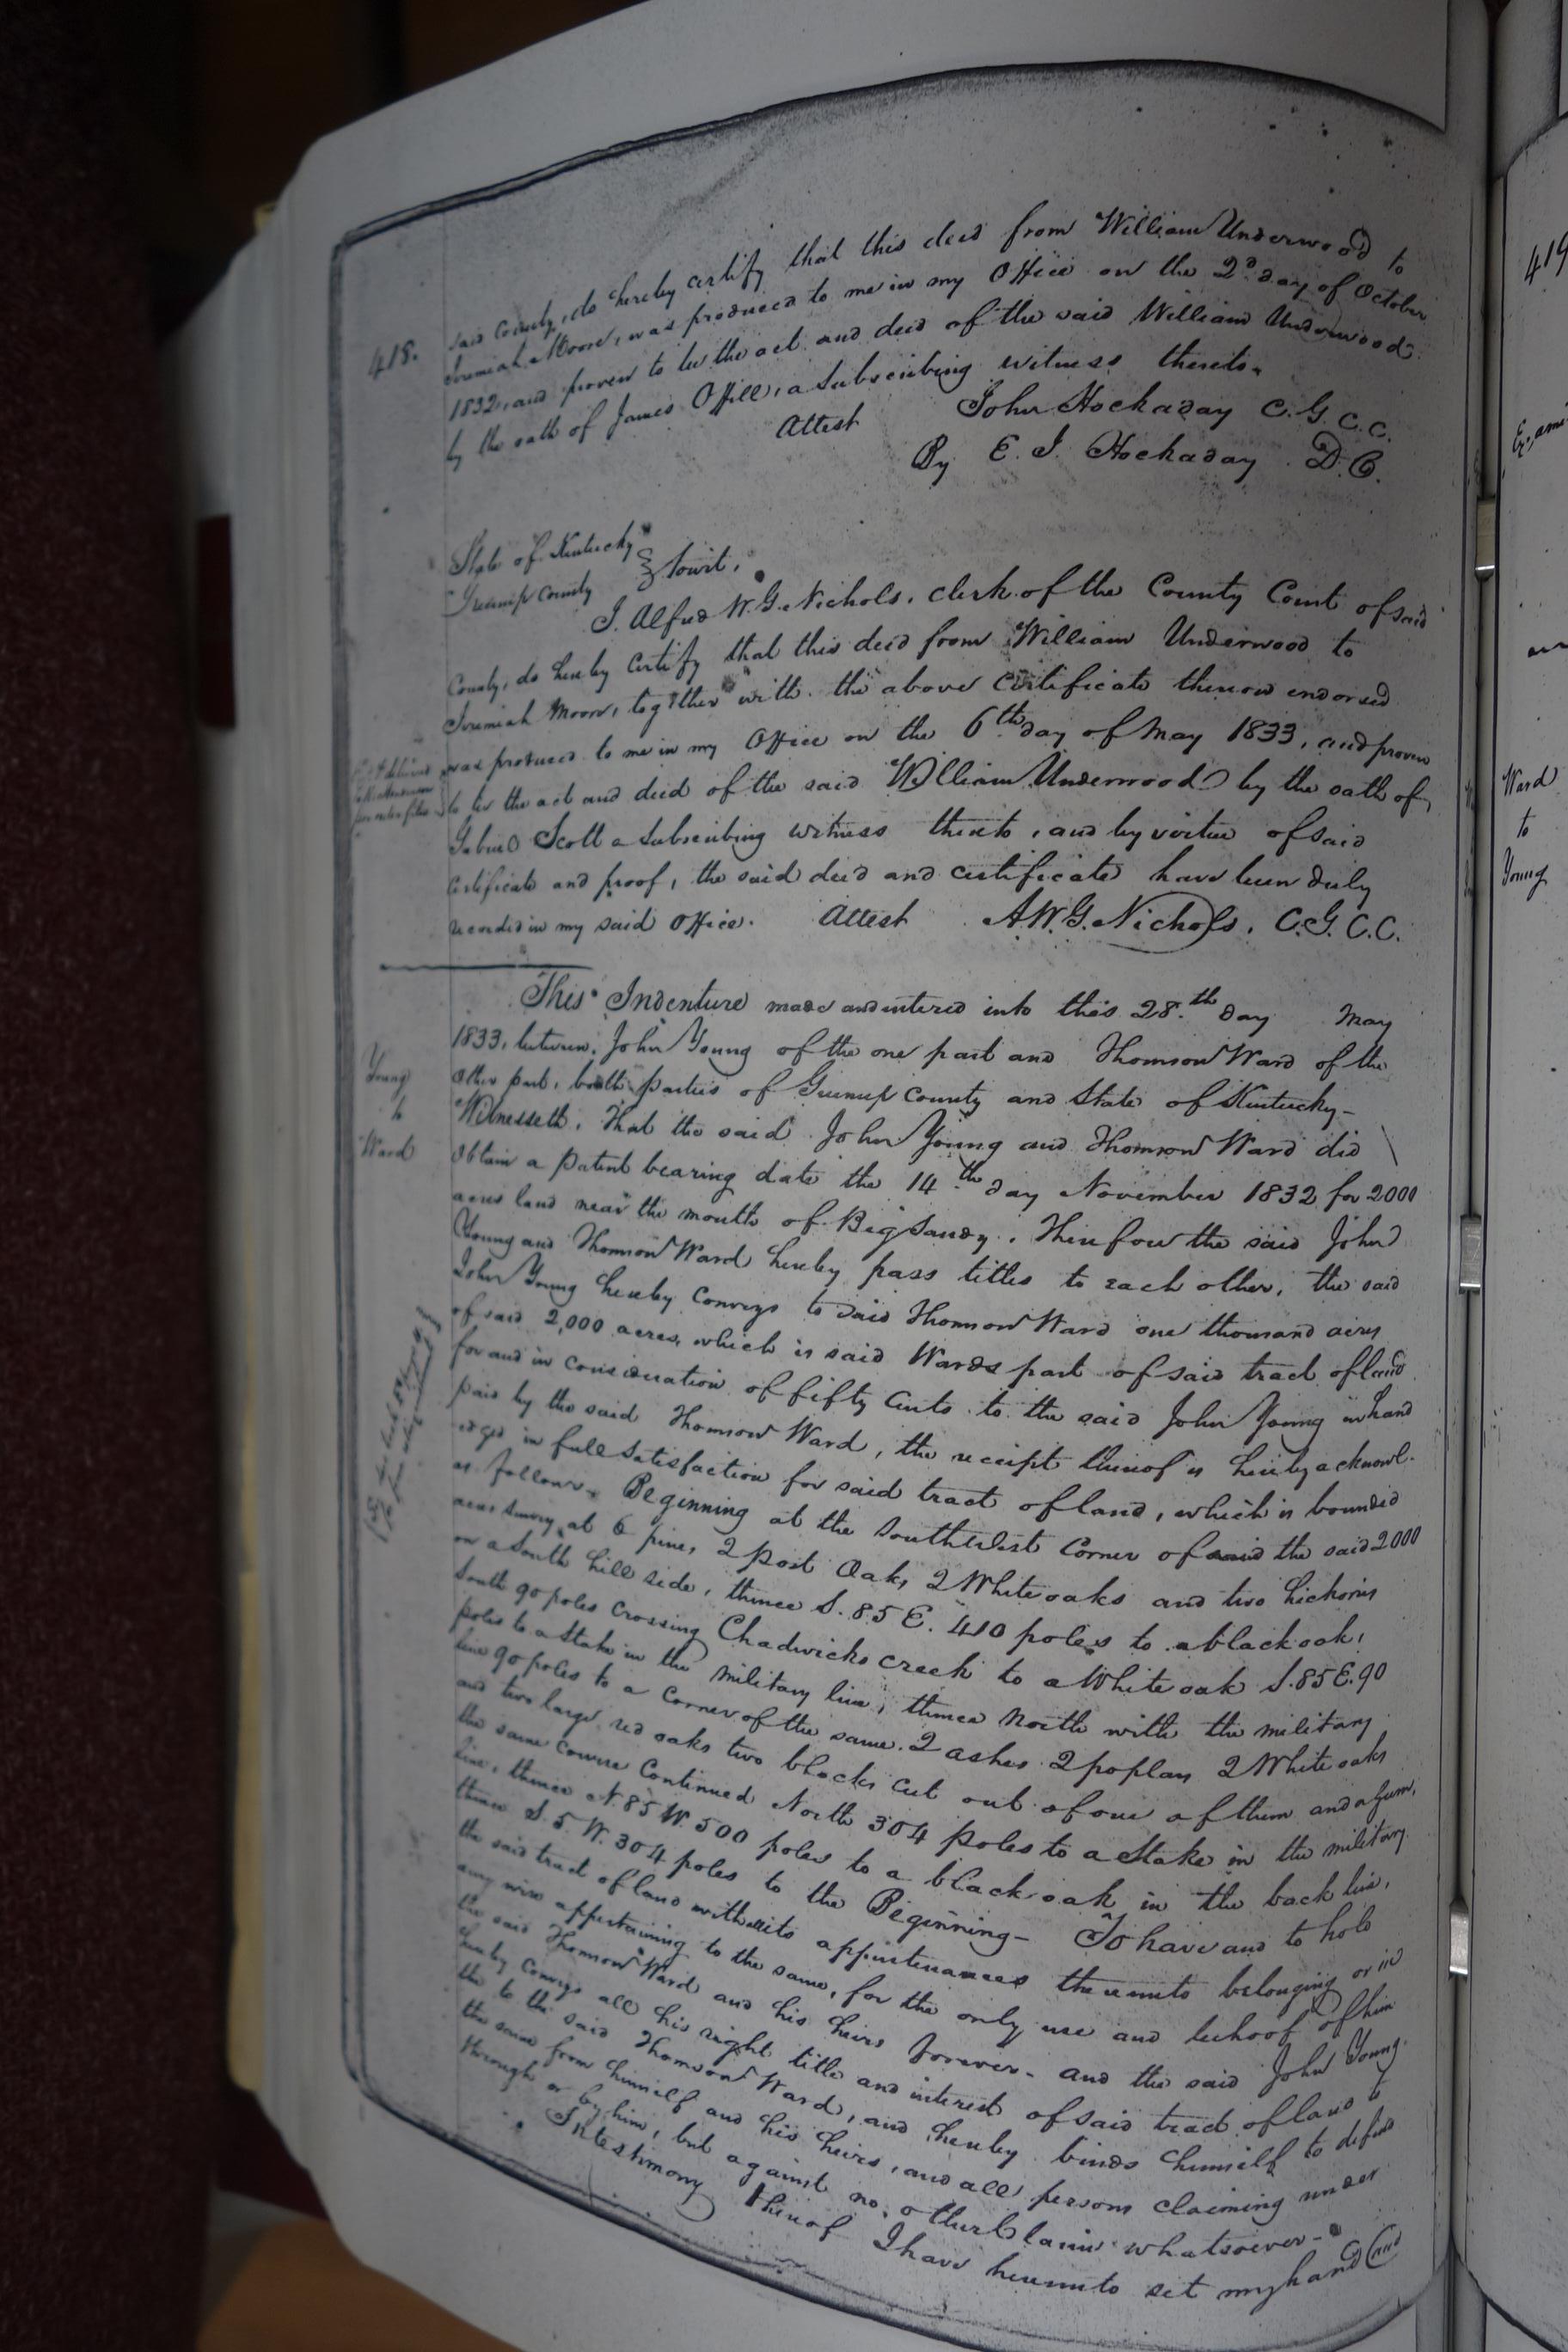 418.
said County, do hereby certify that this deed from William Underwood to
Jeremiah Moore, was produced to me in my Office on the 2d day of October
1832, and proven to be the act and deed of the said William Underwood
by the oath of James Offill, a Subscribing witness thereto.
Attest John Hockaday C. G. C. C.
By E. I. Hockaday D. C.
State of Kentucky
Greenup County } towit,
I. Alfred W. G. Nichols, clerk of the County Court of said
County, do hereby certify that this deed from William Underwood to
Jeremiah Moore, together with the above certificate thereon endorsed
was produced to me in my Office on the 6th day of May 1833, and proven
to be the act and deed of the said William Underwood by the oath of
Gabriel Scott a Subscribing witness thereto, and by virtue of said
Certificate and proof, the said deed and certificate have been duly
recorded in my said Office. Attest A. W. G. Nichols, C. G. C. C.
Young
to
Ward
This Indenture made and entered into this 28.th day May
1833, between, John Young of the one part and Thomson Ward of the
Other part, both parties of Greenup County and State of Kentucky—
Witnesseth, That the said John Young and Thomson Ward did
Obtain a patent bearing date the 14th day November 1832 for 2000
acres land near the mouth of Big Sandy. Therefore the said John
Young and Thomson Ward hereby pass titles to each other, the said
John Young hereby conveys to said Thomson Ward one thousand acres
of said 2,000 acres, which is said Wards part of said tract of land
for and in consideration of fifty Cents to the said John Young in hand
paid by the said Thomson Ward, the receipt thereof is hereby acknowl-
edged in full satisfaction for said tract of land, which is bounded
as follows. Beginning at the SouthWest Corner of said the said 2000
acres survey at 6 pines, 2 post Oaks, 2 White oaks and two hickories
on a South hill side, thence S. 85 E. 410 poles to a black oak,
South 90 poles Crossing Chadwicks creek to a White oak S. 85 E. 90
poles to a Stake in the military line, thence North with the military
line 90 poles to a Corner of the same. 2 ashes 2 poplars 2 White oaks
and two large red oaks two blocks cut out of one of them and a Gum,
the same course Continued North 304 poles to a Stake in the military
line, thence N. 85 W. 500 poles to a black oak in the back line,
thence S. 5 W. 304 poles to the Beginning— To have and to hold
the said tract of land with its appurtenances thereunto belonging or in
any wise appertaining to the same, for the only use and behoof of him
the said Thomson Ward and his heirs forever. and the said John Young
hereby conveys all his right title and interest of said tract of land to
the to the said Thomson Ward, and hereby binds himself to defend
the same from himself and his heirs, and all persons claiming under
through or by him, but against no other Claim whatsoever—
In testimony thereof I have hereunto set my hand and
419
Ward
to
Young